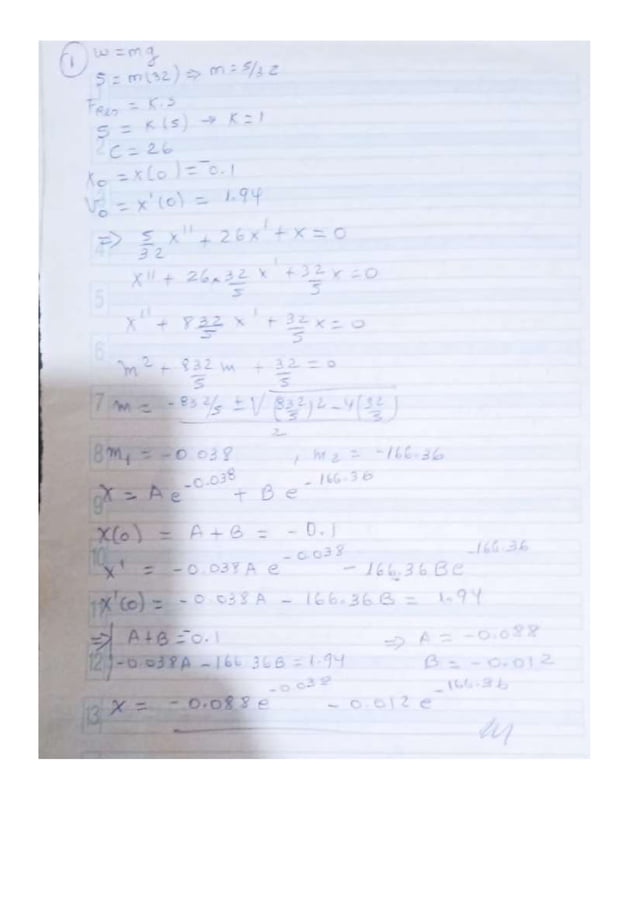 1 w = mg
5 = m(32) ⇒ m = 5/32
Fres = K.s
5 = K(5) → K = 1
C = 26
x₀ = x(0) = -0.1
V₀ = x'(0) = 1.94
⇒ 5/32 x'' + 26x' + x = 0
x'' + 26 × 32/5 x' + 32/5 x = 0
x'' + 832/5 x' + 32/5 x = 0
m² + 832/5 m + 32/5 = 0
m = (-832/5 ± √((832/5)2 - 4(32/5)))/2
m₁ = -0.038 , m₂ = -166.36
x = A e^-0.038 + B e^-166.36
x(0) = A + B = -0.1
x' = -0.038 A e^-0.038 - 166.36 B e^-166.36
x'(0) = -0.038A - 166.36B = 1.94
⇒ A + B = -0.1 ⇒ A = -0.088
-0.038A - 166.36B = 1.94 B = -0.012
x = -0.088 e^-0.038 - 0.012 e^-166.36